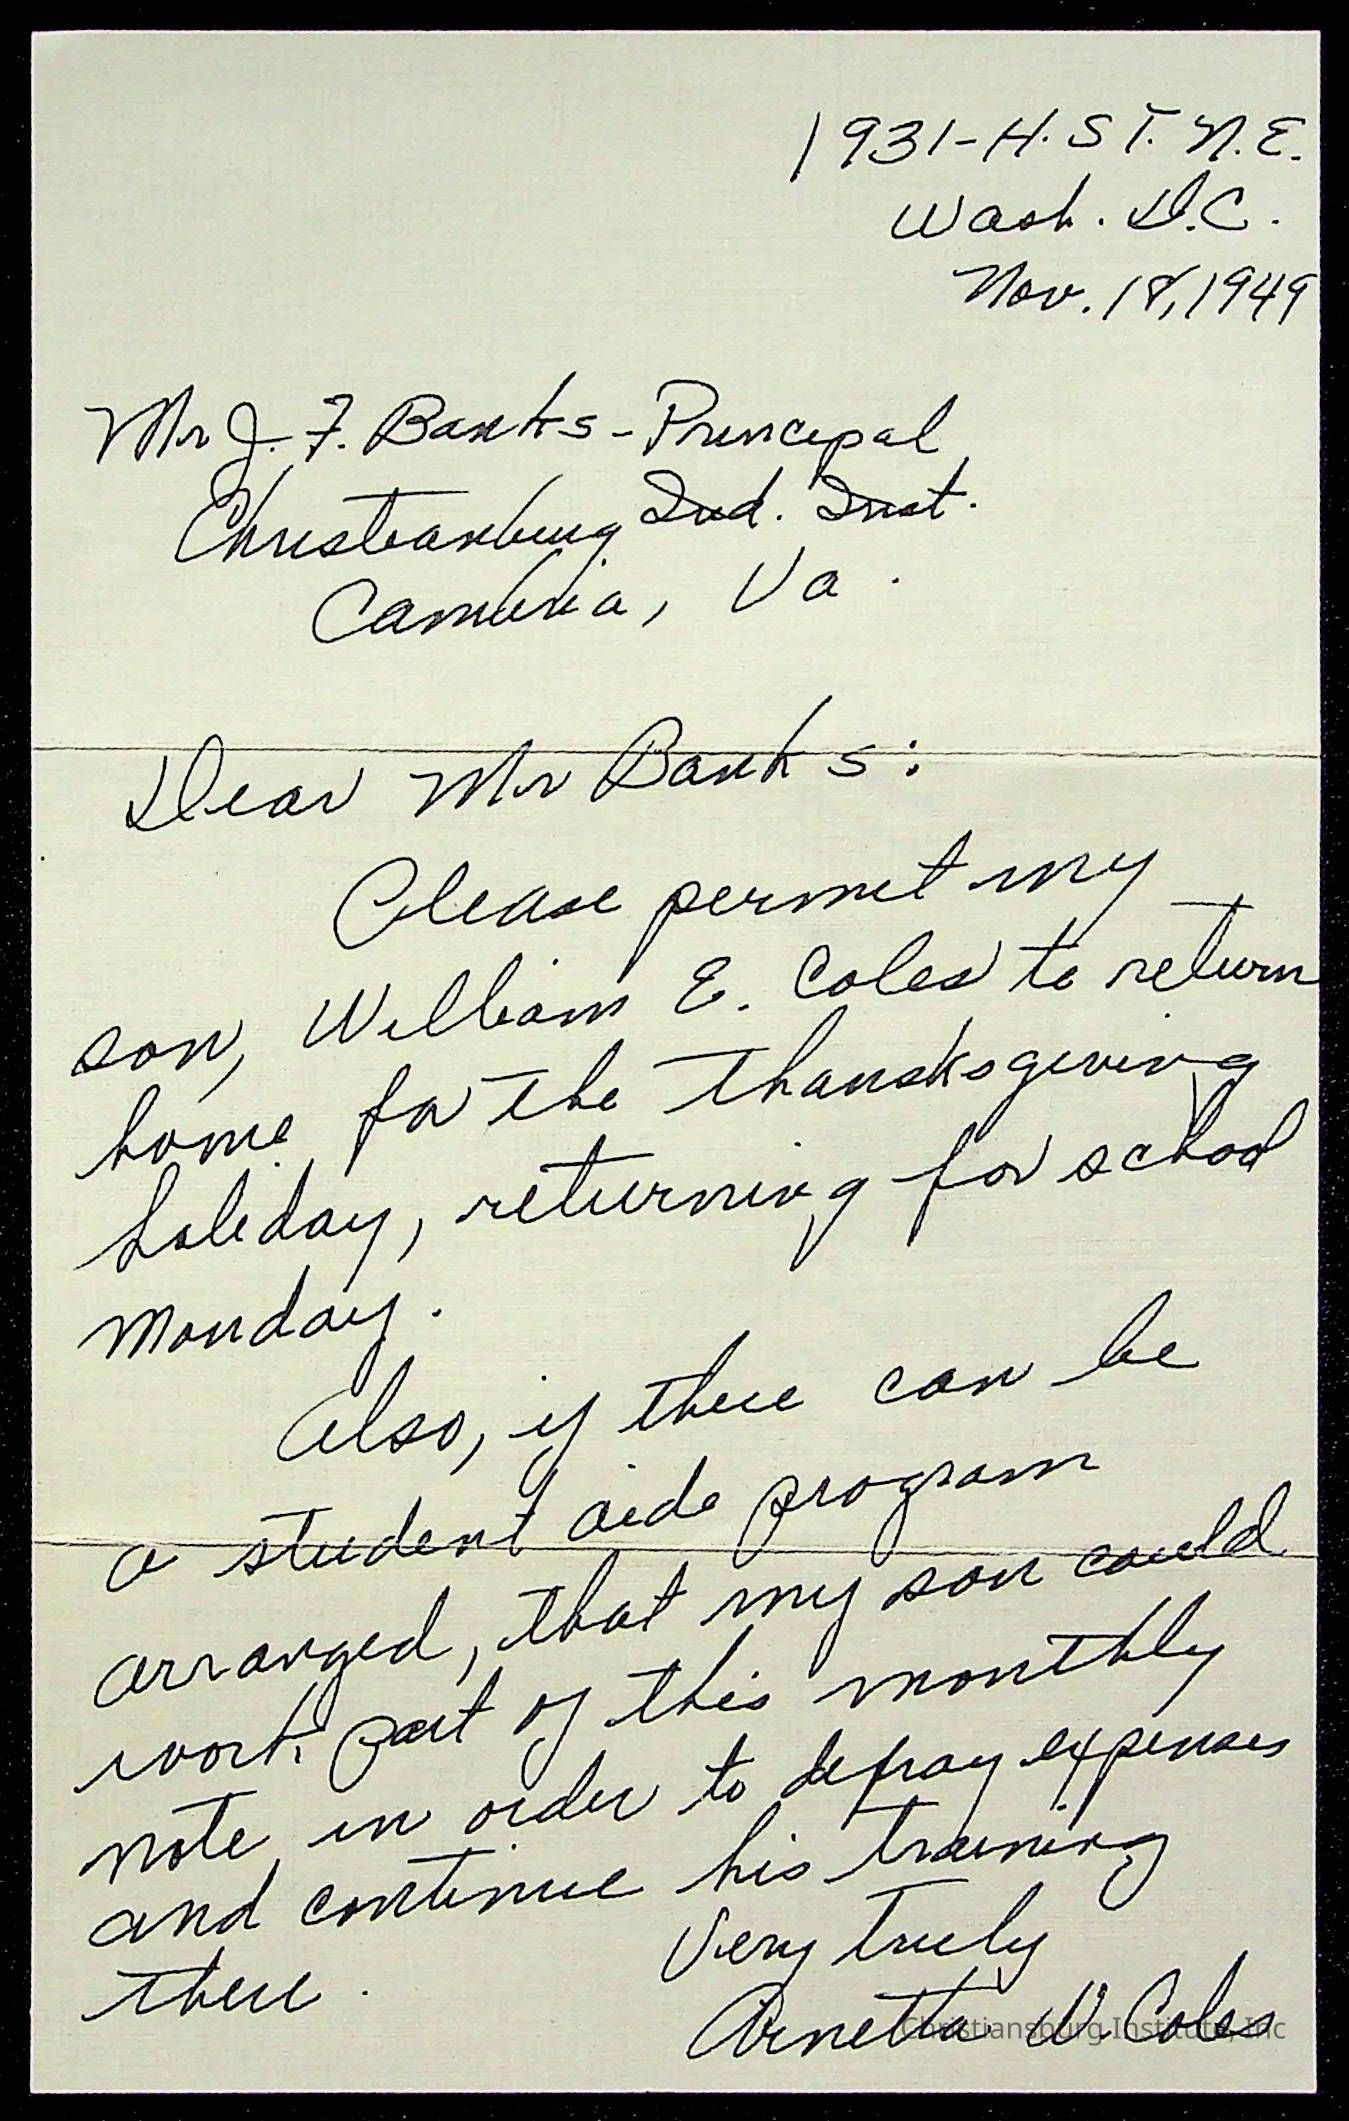 1931-H. ST. N.E.
Wash. D.C.
Nov. 18, 1949
Mr J. F. Banks - Principal
Christianburg Ind. Inst.
Cambria, Va.
Dear Mr Banks:
Please permit my
son, William E. Coles to return
home for the Thanksgiving
holiday, returning for school
Monday.
Also, if there can be
a student aide program
arranged, that my son could
work part of this monthly
note in order to defray expenses
and continue his training
there.
Very truly
Arnetta W. Coles
Christiansburg Institute, Inc